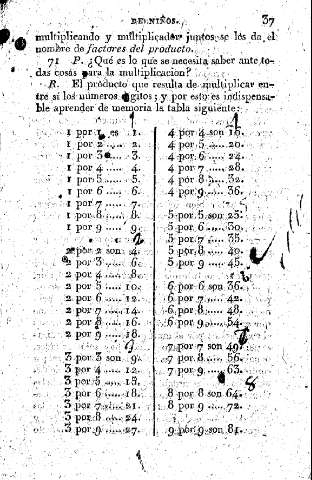 DE NIÑOS. 37
multiplicando y multiplicador juntos se les da el
nombre de factores del producto.
71 P. ¿Qué es lo que se necesita saber ante to-
das cosas para la multiplicacion?
R. El producto que resulta de multiplicar en-
tre sí los números dígitos; y por esto es indispensa-
ble aprender de memoria la tabla siguiente:
1 por 1 es 1.
1 por 2 ..... 2.
1 por 3 ..... 3.
1 por 4 ..... 4.
1 por 5 ..... 5.
1 por 6 ..... 6.
1 por 7 ..... 7.
1 por 8 ..... 8.
1 por 9 ..... 9.
2
2 por 2 son 4.
2 por 3 ..... 6.
2 por 4 ..... 8.
2 por 5 ..... 10.
2 por 6 ..... 12.
2 por 7 ..... 14.
2 por 8 ..... 16.
2 por 9 ..... 18.
3 por 3 son 9.
3 por 4 ..... 12.
3 por 5 ..... 15.
3 por 6 ..... 18.
3 por 7 ..... 21.
3 por 8 ..... 24.
3 por 9 ..... 27.
4
4 por 4 son 16.
4 por 5 ..... 20.
4 por 6 ..... 24.
4 por 7 ..... 28.
4 por 8 ..... 32.
4 por 9 ..... 36.
5 por 5 son 25.
5 por 6 ..... 30.
5 por 7 ..... 35.
5 por 8 ..... 40.
5 por 9 ..... 45.
6 por 6 son 36.
6 por 7 ..... 42.
6 por 8 ..... 48.
6 por 9 ..... 54.
7 por 7 son 49.
7 por 8 ..... 56.
7 por 9 ..... 63.
8
8 por 8 son 64.
8 por 9 ..... 72.
9 por 9 son 81.